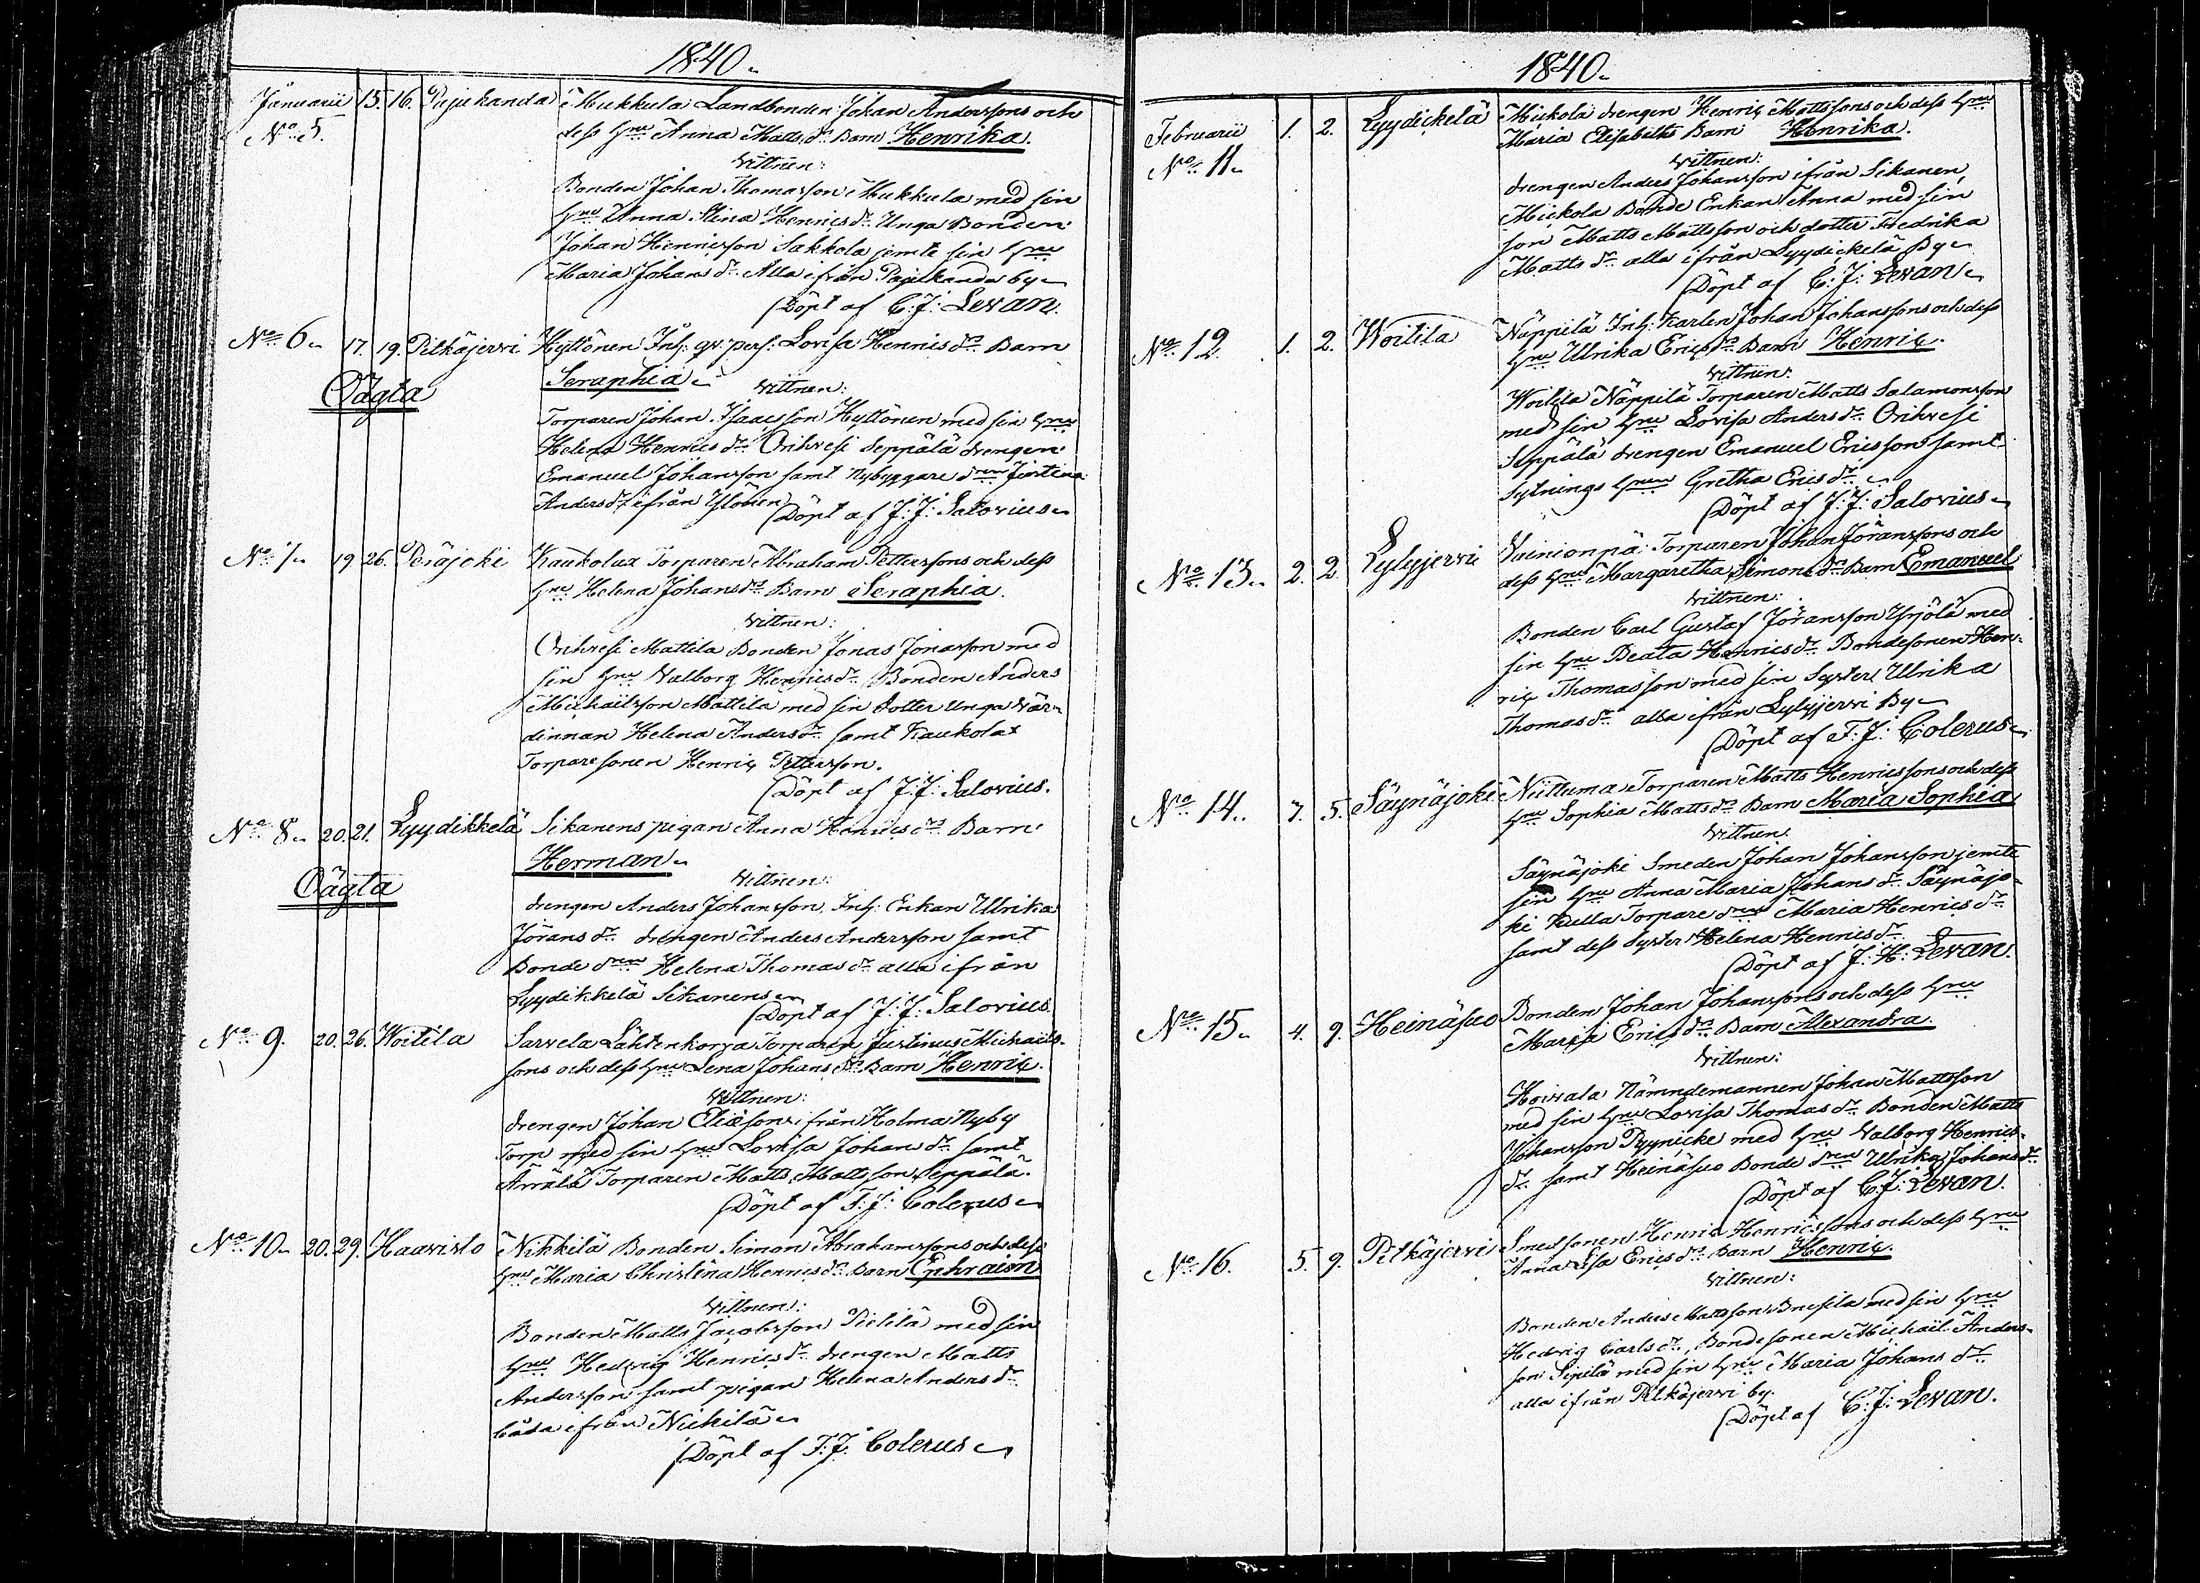 1840.
Januarii 15. 16. Pajukanda Mukkula Landbonden Johan Anderssons och
No 5. dess Hru Anna Matts dr Barn Henrika.
Vittnen:
Bonden Johan Thomasson Mukkula med sin
Hru Anna Stina Henrics dr Unga Bonden
Johan Henricsson Sakkola jemte sin Hru
Maria Johans dr Alla ifrån Pajukanda by
Döpt af C. J. Levan.
No 6 17. 19. Pitkäjervi Hyttönen Inh: qv. pers: Lovisa Henrics dr Barn
Oägta Seraphia
Vittnen:
Torparen Johan Isaacsson Hyttönen med sin Hru
Helena Henrics dr Orihvesi Seppälä drengen
Emanuel Johansson samt Nybyggare dren
Anders dr ifrån Ylönen
Döpt af J: J: Salovius
No 7 19 26. Peräjoki Kaukolax Torparen Abraham Petterssons och dess
Hru Helena Johans dr Barn Seraphia.
Vittnen:
Orihvesi Mattila Bonden Jonas Jonasson med
sin Hru Valborg Henrics dr Bonden Anders
Michaelsson Mattila med sin Dotter unga Vär-
dinnan Helena Anders dr samt Kaukolax
Torparesonen Henric Pettersson.
Döpt af J: J: Salovius.
No 8 20. 21. Lyydikkelä Sikanens pigan Anna Henrics dr Barn
Oägta Herman
Vittnen:
drengen Anders Johansson, Inh: Enkan Ulrika
Jörans dr drengen Anders Andersson samt
Bonde dren Helena Thomas dr alla ifrån
Lyydikkelä Sikanens
Döpt af J: J: Salovius.
No 9. 20. 26. Woitila Sarvela Lähtenkorva Torparen Justinus Michaels-
sons och dess Hru Lena Johans dr Barn Henric.
Vittnen:
drengen Johan Eliæson ifrån Holma Nyby
Torp med sin Hru Lovisa Johan dr samt
Torparen Matts Mattsson Seppälä.
Döpt af F: J: Colerus
No 10 20. 29. Haavisto Nikkilä Bonden Simon Abrahamssons och dess
Hru Maria Christina Henrics dr Barn Ephraim
Vittnen:
Bonden Matts Jacobsson Pietilä med sin
Hru Hedvig Henrics dr drengen Matts
Andersson samt pigan Helena Anders dr
båda ifrån Nickilä
Döpt af F: J: Colerus
1840.
Februarii 1. 2. Lyydickelä Mickola drengen Henric Mattssons och dess Hru
No 11 Maria Elisabeths Barn Henrika.
Vittnen:
drengen Anders Johansson ifrån Sikanen,
Mickola Bonde Enkan Anna med sin
son Matts Mattsson och dotter Fredrika
Matts dr alla ifrån Lyydickelä By
Döpt af C: J: Levan
No 12. 1. 2. Woitila Näppilä Inh: Karlen Johan Johanssons och dess
Hru Ulrika Erics dr Barn Henric.
Vittnen:
Woitila Näppilä Torparen Matts Salamonsson
med sin Hru Lovisa Anders dr Orihvesi
Seppälä drengen Emanuel Ericsson samt
Sytnings Hrun Gretha Erics dr
Döpt af J: J: Salovius
No 13 2. 2 Lylyjervi Vainionpä Torparen Johan Jöranssons och
dess Hru Margaretha Simons dr Barn Emanuel
Vittnen:
Bonden Carl Gustaf Jöransson Yrjölä med
sin Hru Beata Henrics dr Bondesonen Hen-
ric Thomasson med sin Syster Ulrika
Thomas dr alla ifrån Lylyjervi By
Döpt af F: J: Colerus
No 14. 7. 5. Säynäjoki Niittuma Torparen Matts Henricssons och dess
Hru Sophia Matts dr Barn Maria Sophia
Vittnen:
Säynäjoki Smeden Johan Johansson jemte
sin Hru Anna Maria Johans dr Säynäjo-
ki Kulla Torpare dren Maria Henrics dr
samt dess Syster Helena Henrics dr
Döpt af J: H: Levan.
No 15 4. 9. Heinäsuo Bonden Johan Johanssons och dess Hru
Maria Erics dr Barn Alexandra.
Vittnen:
Koivala Nämndemannen Johan Mattsson
med sin Hru Lovisa Thomas dr Bonden Matts
Johansson Pyynicke med Hru Valborg Henrics
dr samt Heinäsuo Bonde dren Ulrika Johans dr
Döpt af C: J: Levan.
No 16. 5. 9. Pitkäjervi Smedsonen Henric Henricssons och dess Hru
Anna Lisa Erics dr Barn Henric.
Vittnen:
Bonden Anders Mattsson med sin Hru
Hedvig Carls dr, Bondesonen Michaël Anders-
son Sipilä med sin Hru Maria Johans dr
alla ifrån Pitkäjervi by.
Döpt af C: J: Levan.